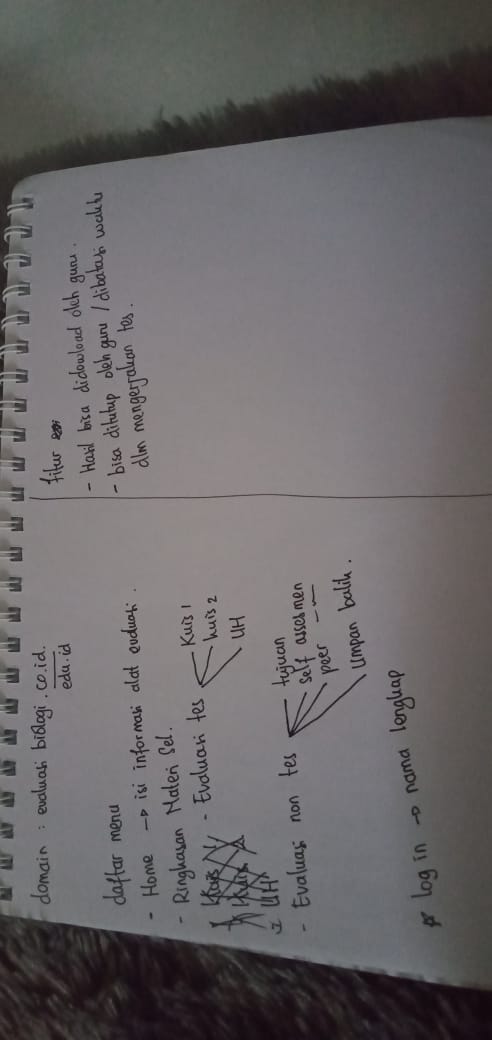 domain : evaluasi biologi . co.id.
edu.id
daftar menu
- Home → isi informasi alat evaluasi .
- Ringkasan Materi Sel.
- Evaluasi tes
Kuis 1
kuis 2
UH
UH
- Evaluasi non tes
tujuan
self assesmen
peer —~—
Umpan balik .
log in → nama lengkap
fitur
- Hasil bisa didowload oleh guru .
- bisa ditutup oleh guru / dibatasi waktu
dlm mengerjakan tes .